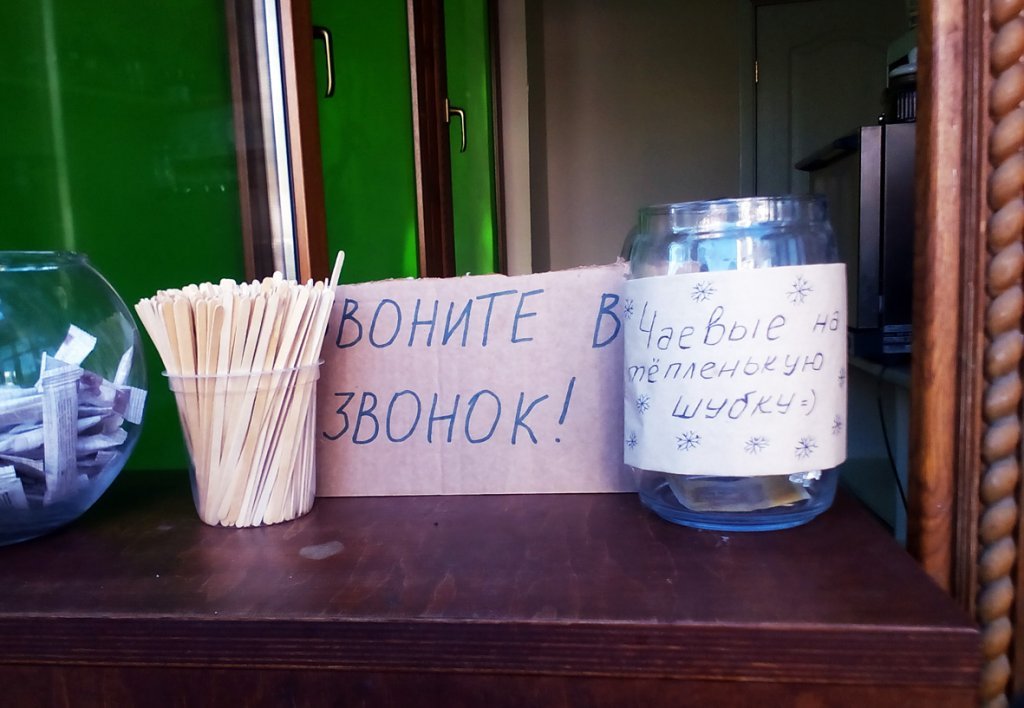 ВОНИТЕ В
ЗВОНОК!
Чаевые на
тёпленькую
шубку=)